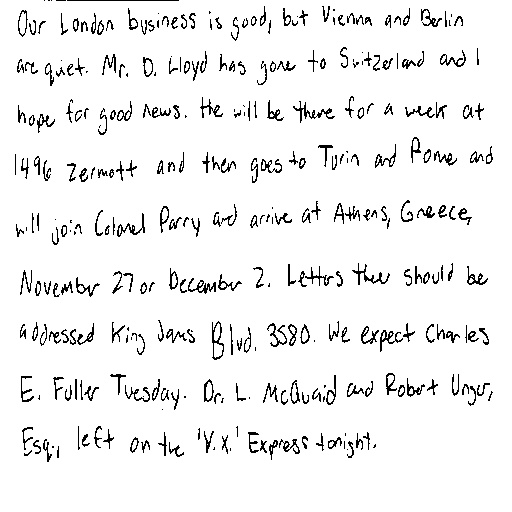 Our London business is good, but Vienna and Berlin
are quiet. Mr. D. Lloyd has gone to Switzerland and I
hope for good news. He will be there for a week at
1496 Zermott and then goes to Turin and Rome and
will join Colonel Parry and arrive at Athens, Greece,
November 27 or December 2. Letters there should be
addressed King James Blvd. 3580. We expect Charles
E. Fuller Tuesday. Dr. L. McQuaid and Robert Unger,
Esq., left on the 'V.X.' Express tonight.